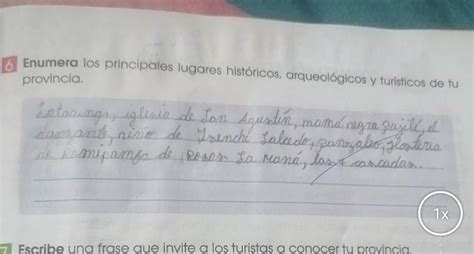 6 Enumera los principales lugares históricos, arqueológicos y turísticos de tu
provincia.
Latacunga, iglesia de San Agustín, mamá negra pujilí, el
danzante, niño de Isinche Salcedo, panzaleo, Hosteria
de rumipamba de rosas La Maná, las 7 cascadas.
1x
7 Escribe una frase que invite a los turistas a conocer tu provincia.